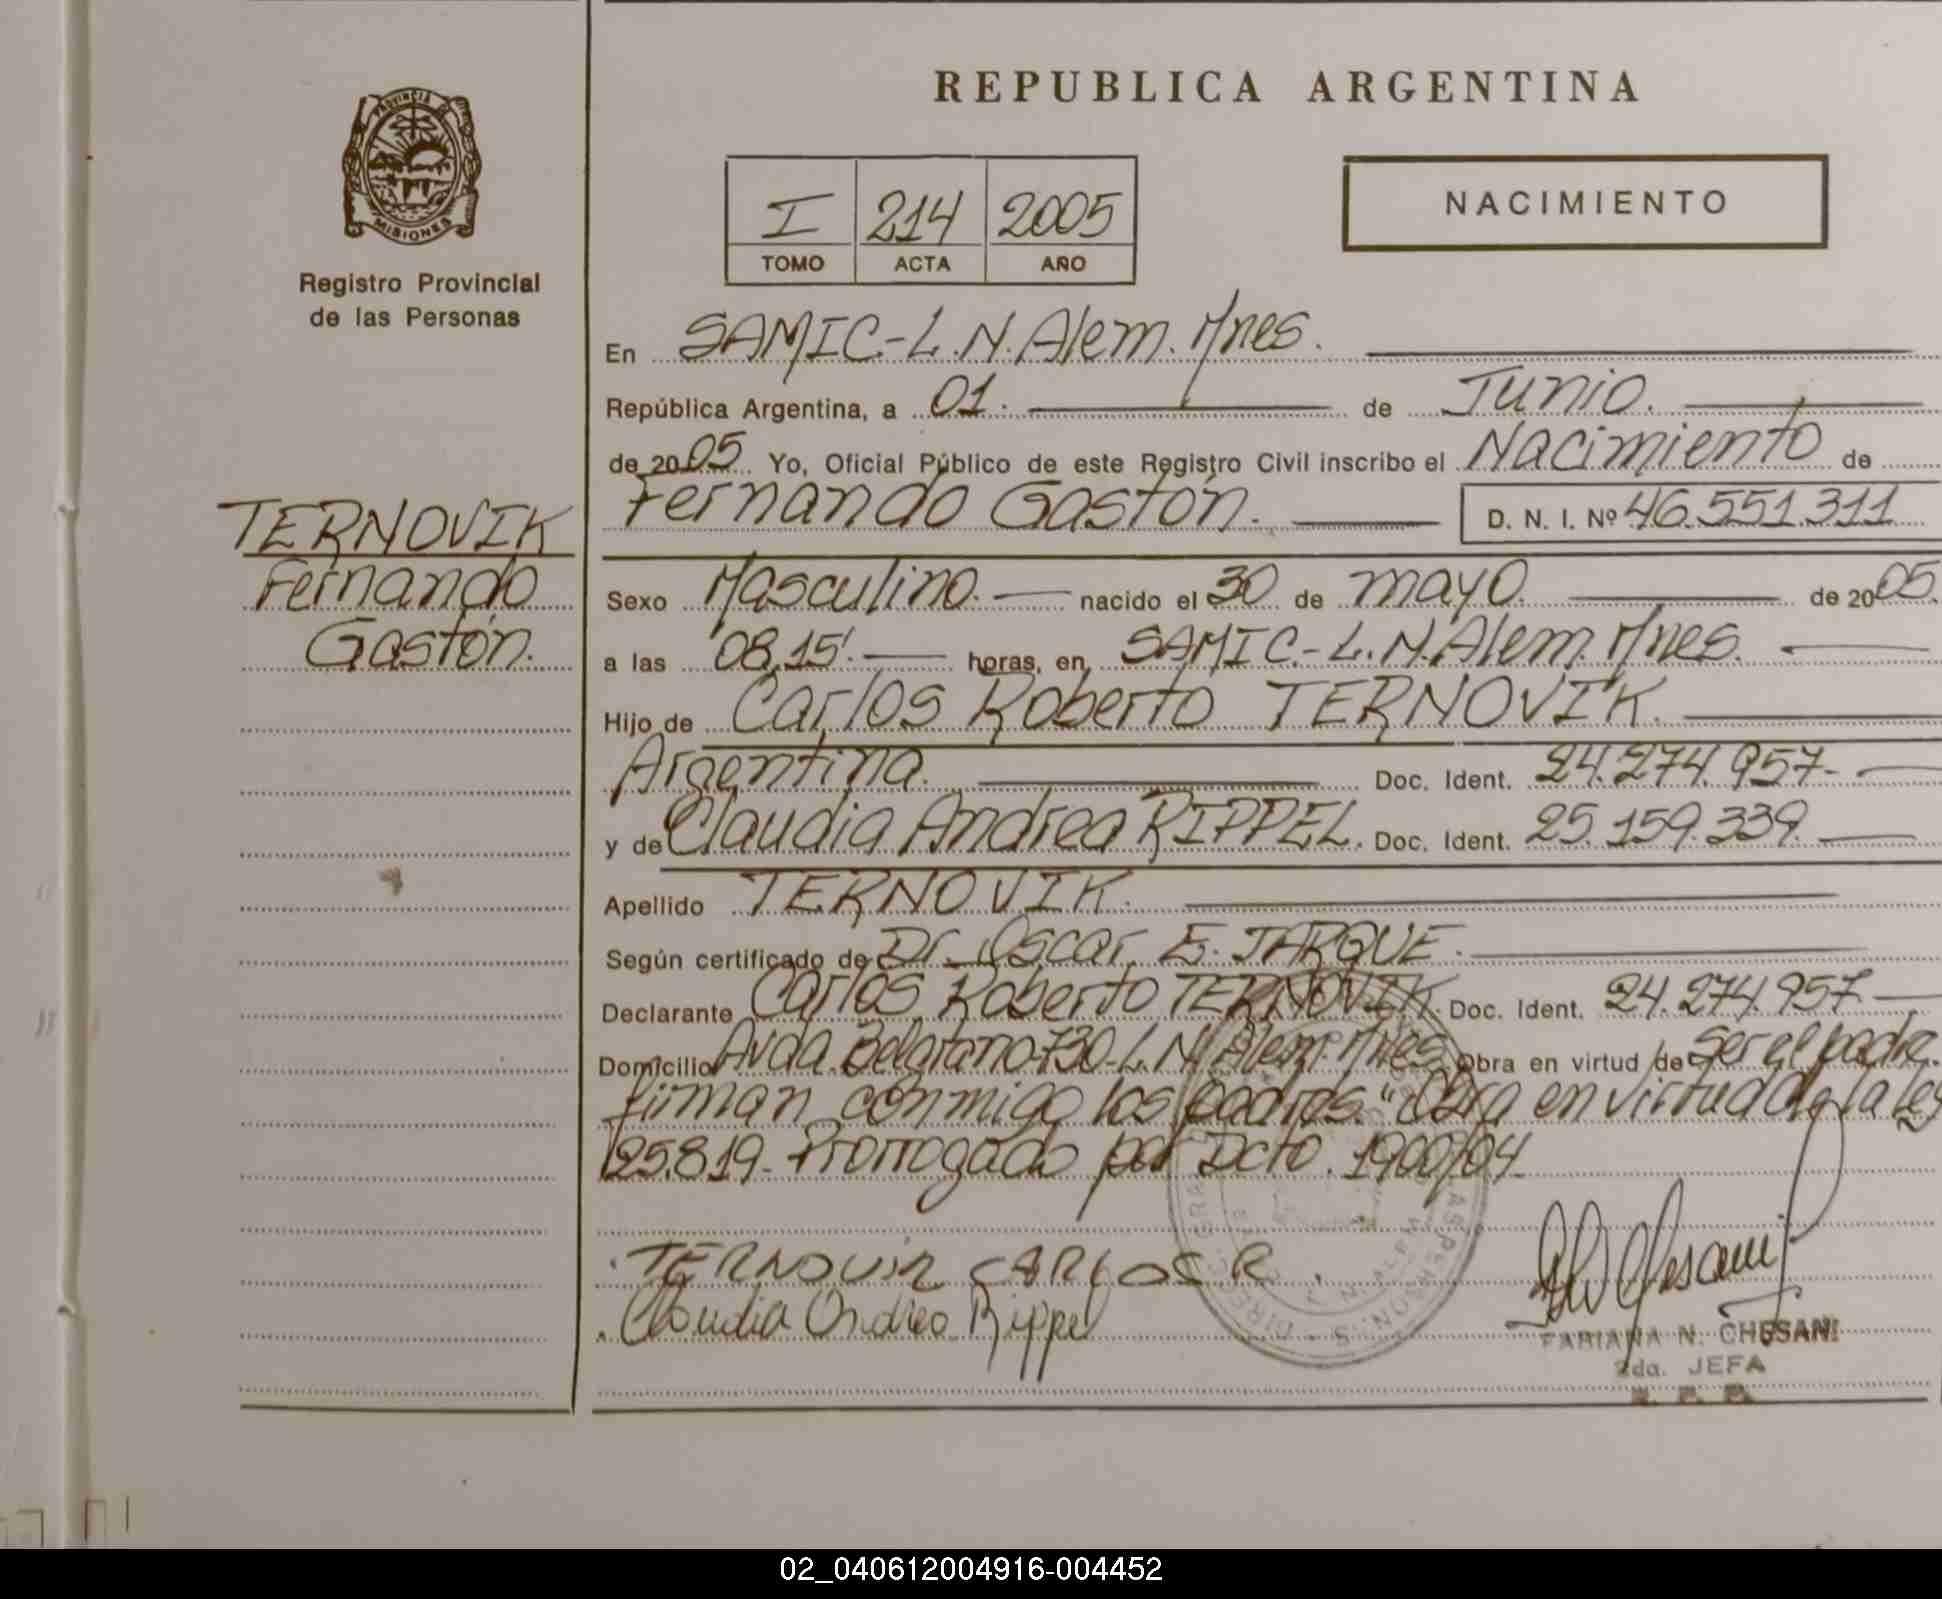 PROVINCIA
MISIONES
Registro Provincial
de las Personas
TERNOVIK
Fernando
Gastón.
REPUBLICA ARGENTINA
I 214 2005
TOMO ACTA AÑO
NACIMIENTO
En SAMIC.-L.N.Alem.Mnes.
República Argentina, a 01. de Junio.
de 2005 Yo, Oficial Público de este Registro Civil inscribo el Nacimiento de
Fernando Gastón. D. N. I. Nº 46.551.311
Sexo Masculino. nacido el 30 de mayo. de 2005.
a las 08,15'. horas, en SAMIC.-L.N.Alem.Mnes.
Hijo de Carlos Roberto TERNOVIK.
Argentina. Doc. Ident. 24.274.957-
y de Claudia Andrea RIPPEL. Doc. Ident. 25.159.339.
Apellido TERNOVIK.
Según certificado de Dr. Oscar. E. JARQUE.
Declarante Carlos Roberto TERNOVIK. Doc. Ident. 24.274.957-
Domicilio Avda.Belgrano-730-L.N.Alem.Mnes. Obra en virtud de Ser el padre.
firman conmigo los padres. "Obra en virtud de la ley
25.819- Prorrogado por Dcto. 1900/04
TERNOVIK CARLOS R.
Claudia Andrea Rippel
FABIANA N. CHESANI
2da. JEFA
02_040612004916-004452